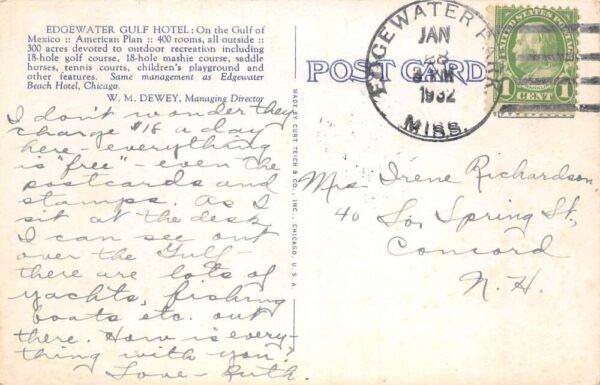 EDGEWATER GULF HOTEL: On the Gulf of
Mexico :: American Plan :: 400 rooms, all outside ::
300 acres devoted to outdoor recreation including
18-hole golf course, 18-hole mashie course, saddle
horses, tennis courts, children's playground and
other features. Same management as Edgewater
Beach Hotel, Chicago.
W. M. DEWEY, Managing Director
I don't wonder they
charge $16 a day
here - everything
is "free" - even the
postcards and
stamps. As I
sit at the desk
I can see out
over the Gulf -
there are lots of
yachts, fishing
boats etc. out
there. How is every-
thing with you?
Love - Ruth.
MADE BY CURT TEICH & CO., INC., CHICAGO, U.S.A.
POST CARD
EDGEWATER PARK
JAN
28
8 AM
1932
MISS.
UNITED STATES POSTAGE
1 CENT 1
Mrs Irene Richardson
40 So. Spring St,
Concord
N. H.